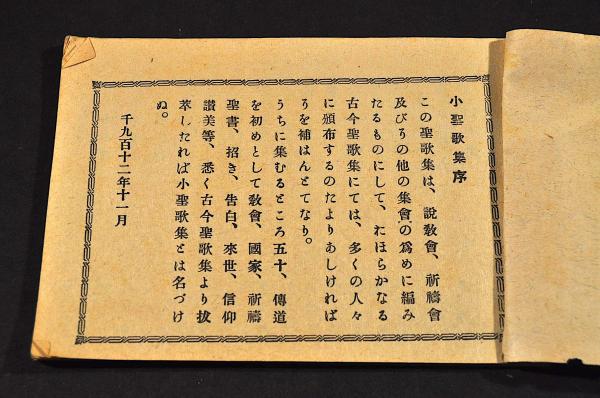 小聖歌集序
この聖歌集は、説敎會、祈禱會
及びその他の集會の爲めに編み
たるものにして、たほらかなる
古今聖歌集にては、多くの人々
に頒布するのたよりあしければ
そを補はんとてなり。
うちに集むるところ五十、傳道
を初めとして敎會、國家、祈禱
聖書、招き、告白、來世、信仰
讃美等、悉く古今聖歌集より拔
萃したれば小聖歌集とは名づけ
ぬ。
千九百十二年十一月